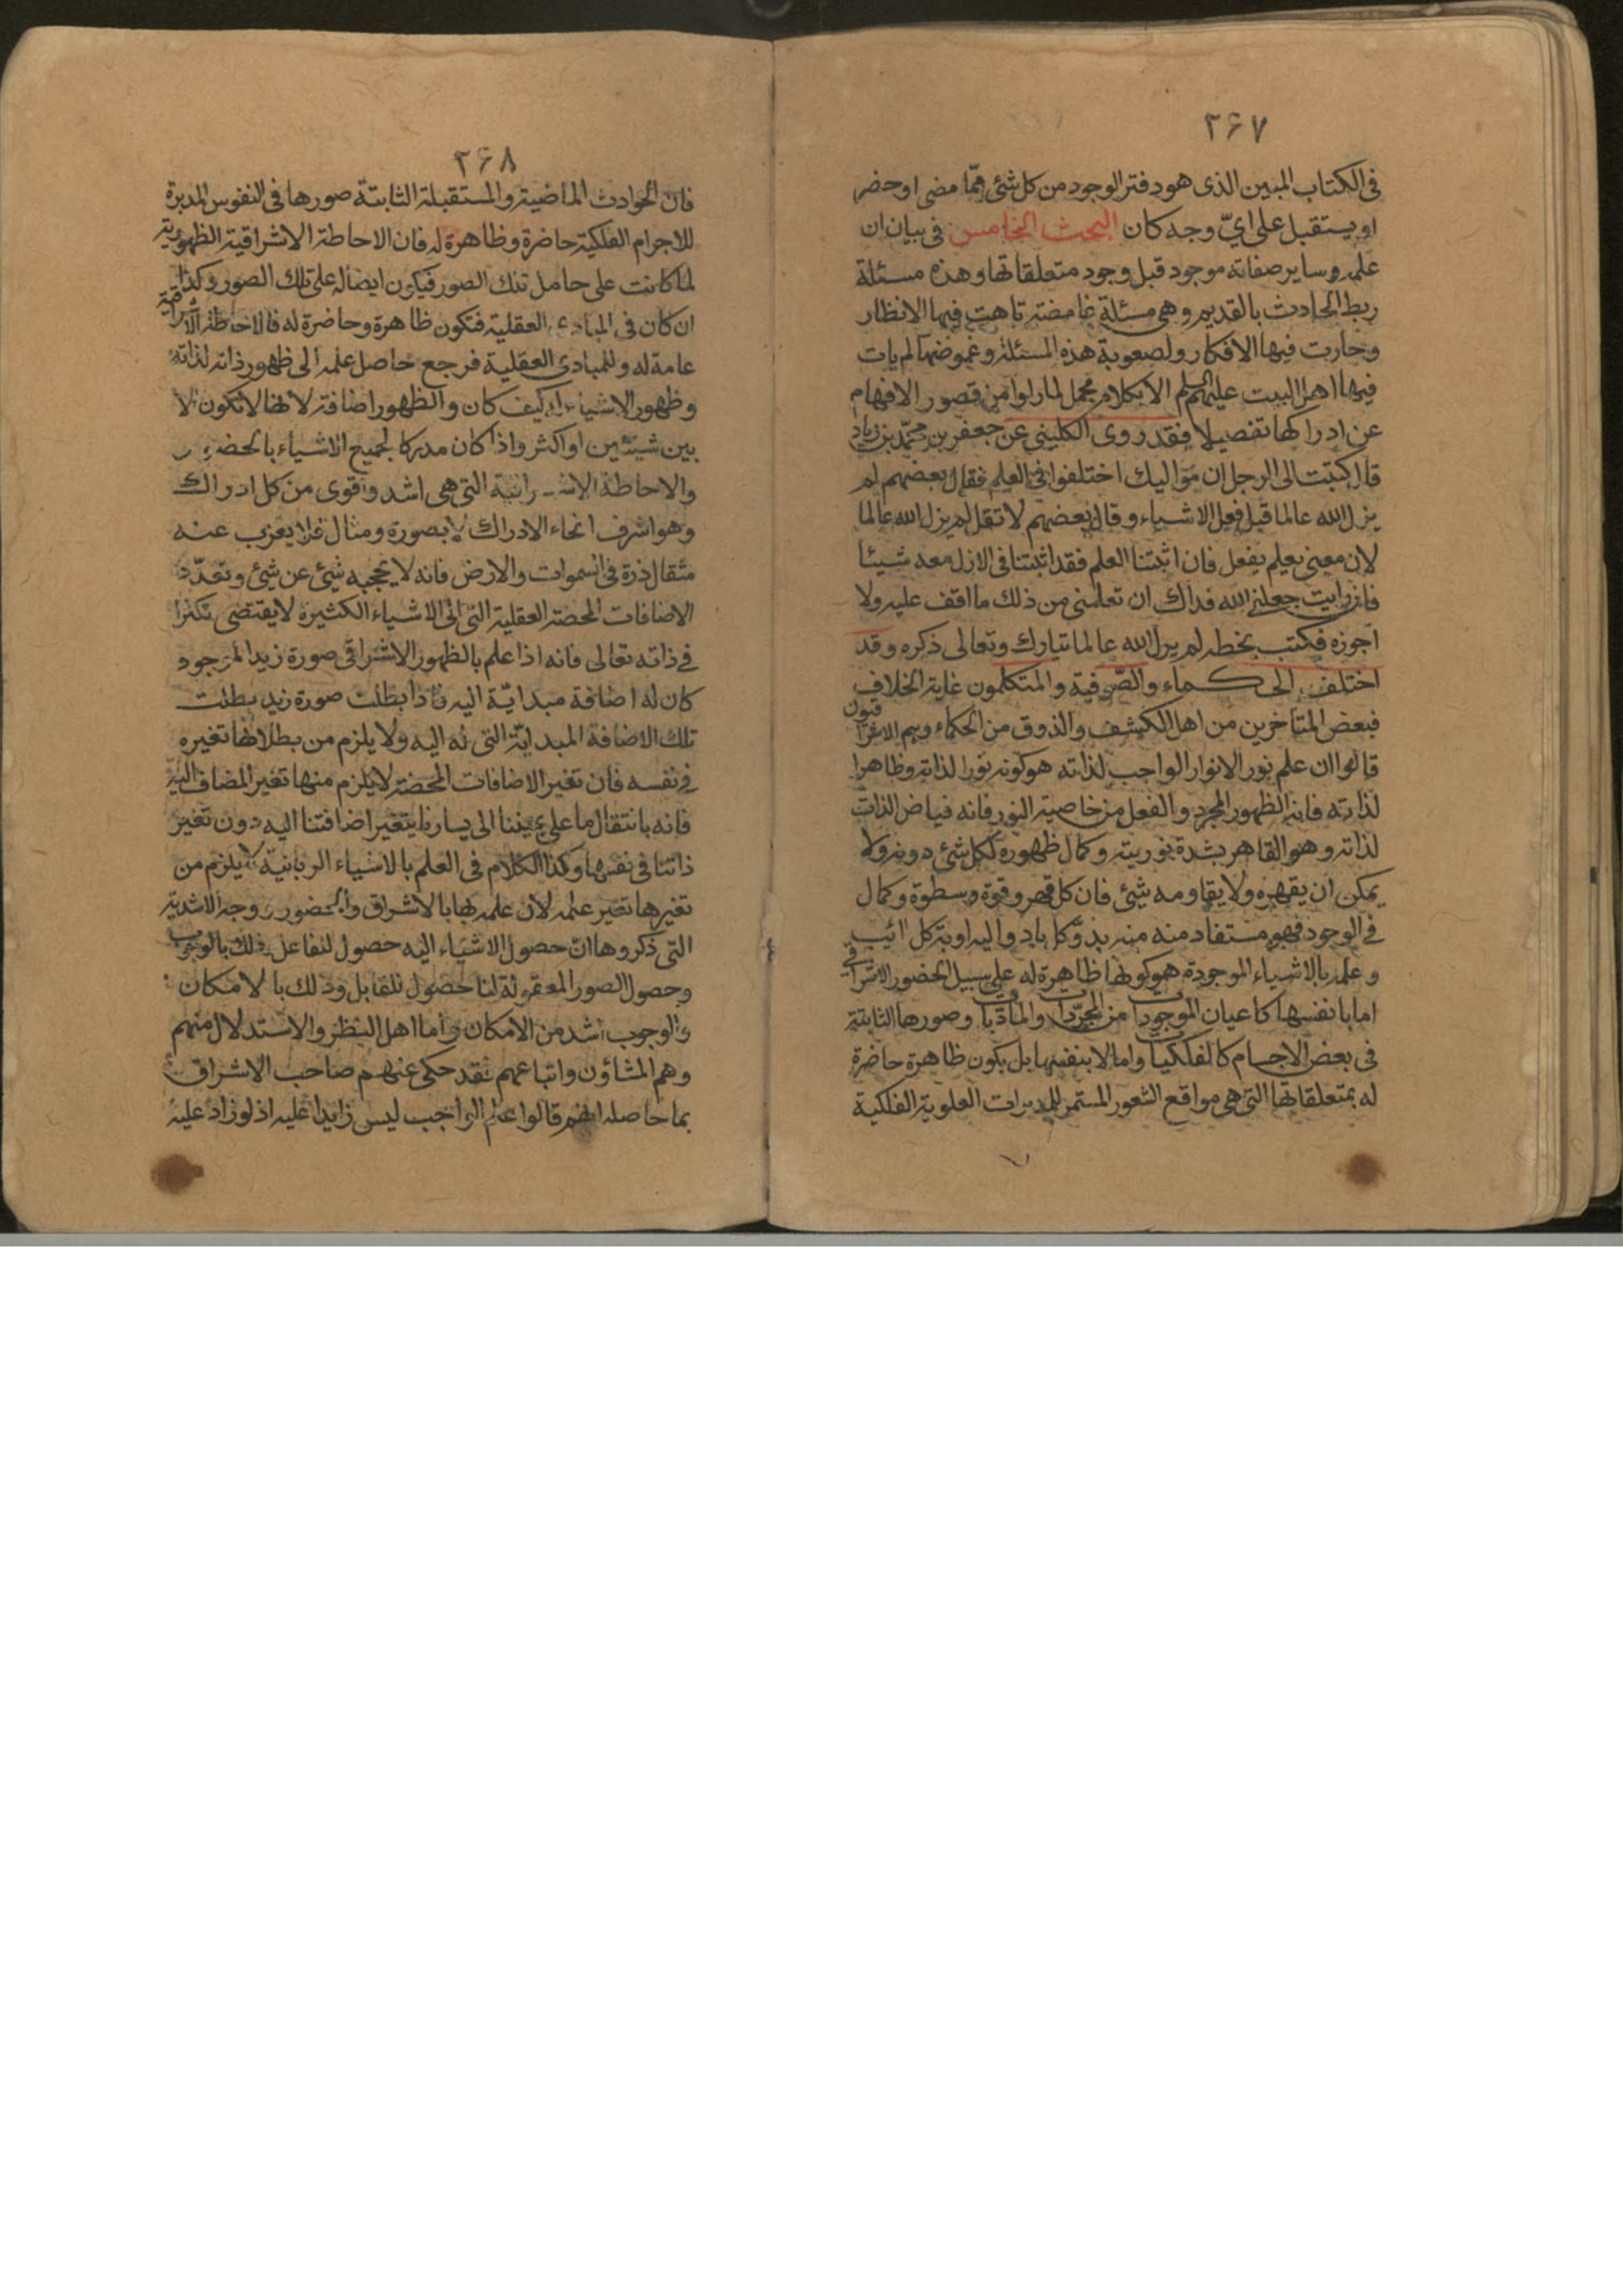 ٢۶٧
فى الكتاب المبين الذى هو دفتر الوجود من كل شئ مما مضى او حضر
او يستقبل على اىّ وجه كان البحث الخامس فى بيان ان
علمه وساير صفاته موجود قبل وجود متعلقاتها وهذه مسئلة
ربط الحادث بالقديم وهى مسئلة غامضة تاهت فيها الانظار
وحارت فيها الافكار ولصعوبة هذه المسئلة وغموضتها لم يات
فيها اهل البيت عليهم السلم الا بكلام مجمل لما راوا من قصور الافهام
عن ادراكها تفصيلا فقد روى الكلينى عن جعفر بن محمد بن زياد
قال كتبت الى الرجل ان مواليك اختلفوا فى العلم فقال بعضهم لم
يزل الله عالما قبل فعل الاشياء وقال بعضهم لا تقل لم يزل الله عالما
لان معنى يعلم يفعل فان اثبتنا العلم فقد اثبتنا فى الازل معه شيئا
فان رايت جعلنى الله فداك ان تعلمنى من ذلك ما اقف عليه ولا
اجوزه فكتب بخطه لم يزل الله عالما تبارك وتعالى ذكره وقد
اختلف الحكماء والصّوفية والمتكلمون غاية الخلاف
فبعض المتاخرين من اهل الكشف والذوق من الحكماء وهم الاشراقيون
قالوا ان علم نور الانوار الواجب لذاته هو كونه نورا لذاته وظاهرا
لذاته فانه الظهور المجرد والفعل من خاصية النور فانه فياض الذات
لذاته وهو القاهر بشدة نوريته وكمال ظهوره لكل شئ دونه ولا
يمكن ان يقهره ولا يقاومه شئ فان كل قهر وقوة وسطوة وكمال
فى الوجود فهو مستفاد منه منه بدؤ كل باد واليه اوبة كل ائب
وعلمه بالاشياء الموجودة هو كونها ظاهرة له على سبيل الحضور الاشراقى
اما بانفسها كاعيان الموجودات من المجرّدات والماديات وصورها الثابتة
فى بعض الاجسام كالفلكيات واما لا بنفسها بل بكون ظاهرة حاضرة
له بمتعلقاتها التى هى مواقع الشعور المستمر للمدبرات العلوية الفلكية
٢۶٨
فان الحوادث الماضية والمستقبلة الثابتة صورها فى النفوس المدبرة
للاجرام الفلكية حاضرة وظاهرة له فان الاحاطة الاشراقية الظهورية
لما كانت على حامل تلك الصور فيكون ايضا له على تلك الصور وكذا
ان كان فى المبادى العقلية فتكون ظاهرة وحاضرة له فالاحاطة الاشراقية
عامة له وللمبادى العقلية فرجع حاصل علمه الى ظهور ذاته لذاته
وظهور الاشياء له كيف كان والظهور اضافة لانها لا تكون الا
بين شيئين او اكثر واذا كان مدركا لجميع الاشياء بالحضور
والاحاطة الاشراقية التى هى اشد واقوى من كل ادراك
وهو اشرف انحاء الادراك لا بصورة ومثال فلا يعزب عنه
مثقال ذرة فى السموات والارض فانه لا يحجبه شئ عن شئ وتعدّد
الاضافات المحضة العقلية التى الى الاشياء الكثيرة لا يقتضى تكثرا
فى ذاته تعالى فانه اذا علم بالظهور الاشراقى صورة زيد الموجود
كان له اضافة مبدائيّة اليه فاذا بطلت صورة زيد بطلت
تلك الاضافة المبدائيّة التى له اليه ولا يلزم من بطلانها تغيره
فى نفسه فان تغير الاضافات المحضة لا يلزم منها تغير المضاف اليه
فانه بانتقال ما على يميننا الى يسارنا يتغير اضافتنا اليه دون تغير
ذاتنا فى نفسها وكذا الكلام فى العلم بالاشياء الربانية لا يلزم من
تغيرها تغير علمه لان علمه بها بالاشراق والحضور ووجه الاشدية
التى ذكروها ان حصول الاشياء اليه حصول للفاعل وذلك بالوجوب
وحصول الصور المعقولة لنا حصول للقابل وذلك بالامكان
والوجوب اشد من الامكان واما اهل النظر والاستدلال منهم
وهم المشاؤن واتباعهم فقد حكى عنهم صاحب الاشراق
بما حاصله انهم قالوا علم الواجب ليس زايدا عليه اذ لو زاد عليه